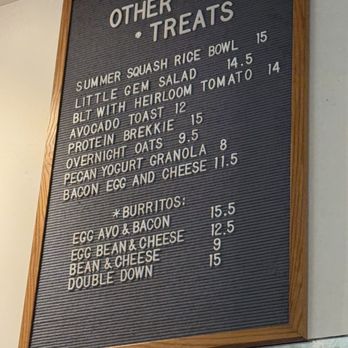 OTHER
• TREATS
SUMMER SQUASH RICE BOWL 15
LITTLE GEM SALAD 14.5
BLT WITH HEIRLOOM TOMATO 14
AVOCADO TOAST 12
PROTEIN BREKKIE 15
OVERNIGHT OATS 9.5
PECAN YOGURT GRANOLA 8
BACON EGG AND CHEESE 11.5
*BURRITOS:
EGG AVO & BACON 15.5
EGG BEAN & CHEESE 12.5
BEAN & CHEESE 9
DOUBLE DOWN 15